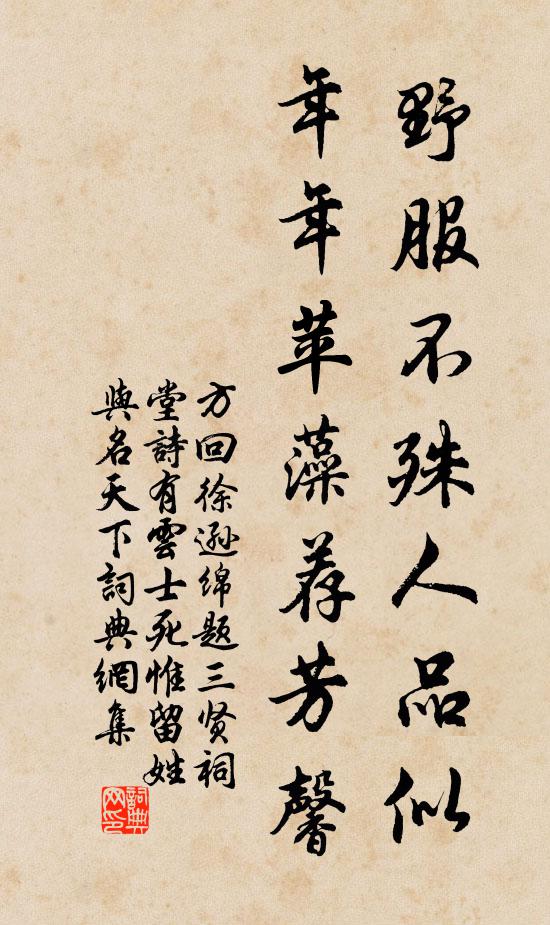 野服不殊人品似
年年苹藻荐芳馨
方回徐逊绵题三贤祠
堂詩有雲士死惟留姓
與名天下詞典網集
詞典
网印